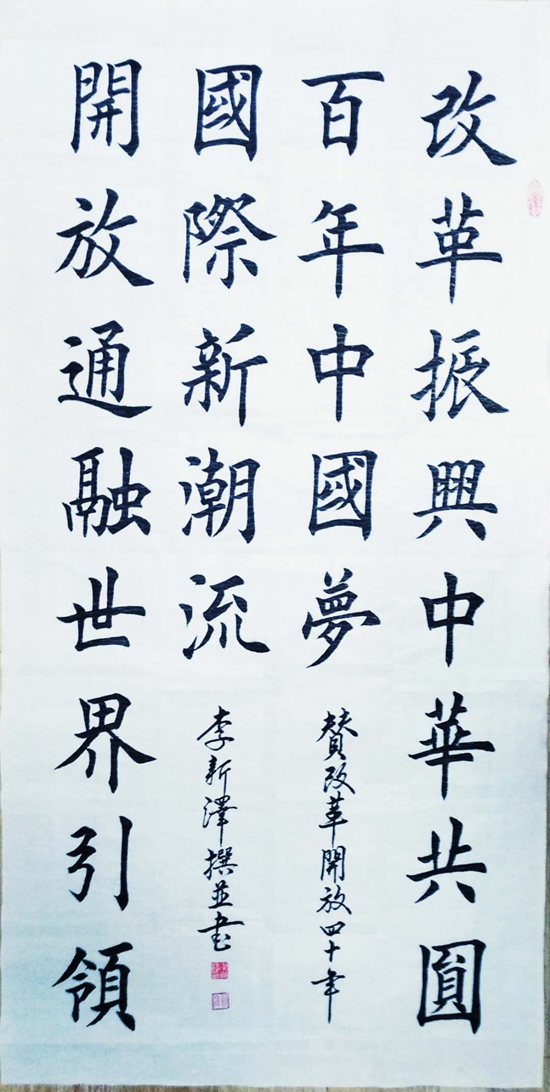 改革振興中華共圓
百年中國夢
開放通融世界引領
國際新潮流
賛改革開放四十年
李新澤撰並書